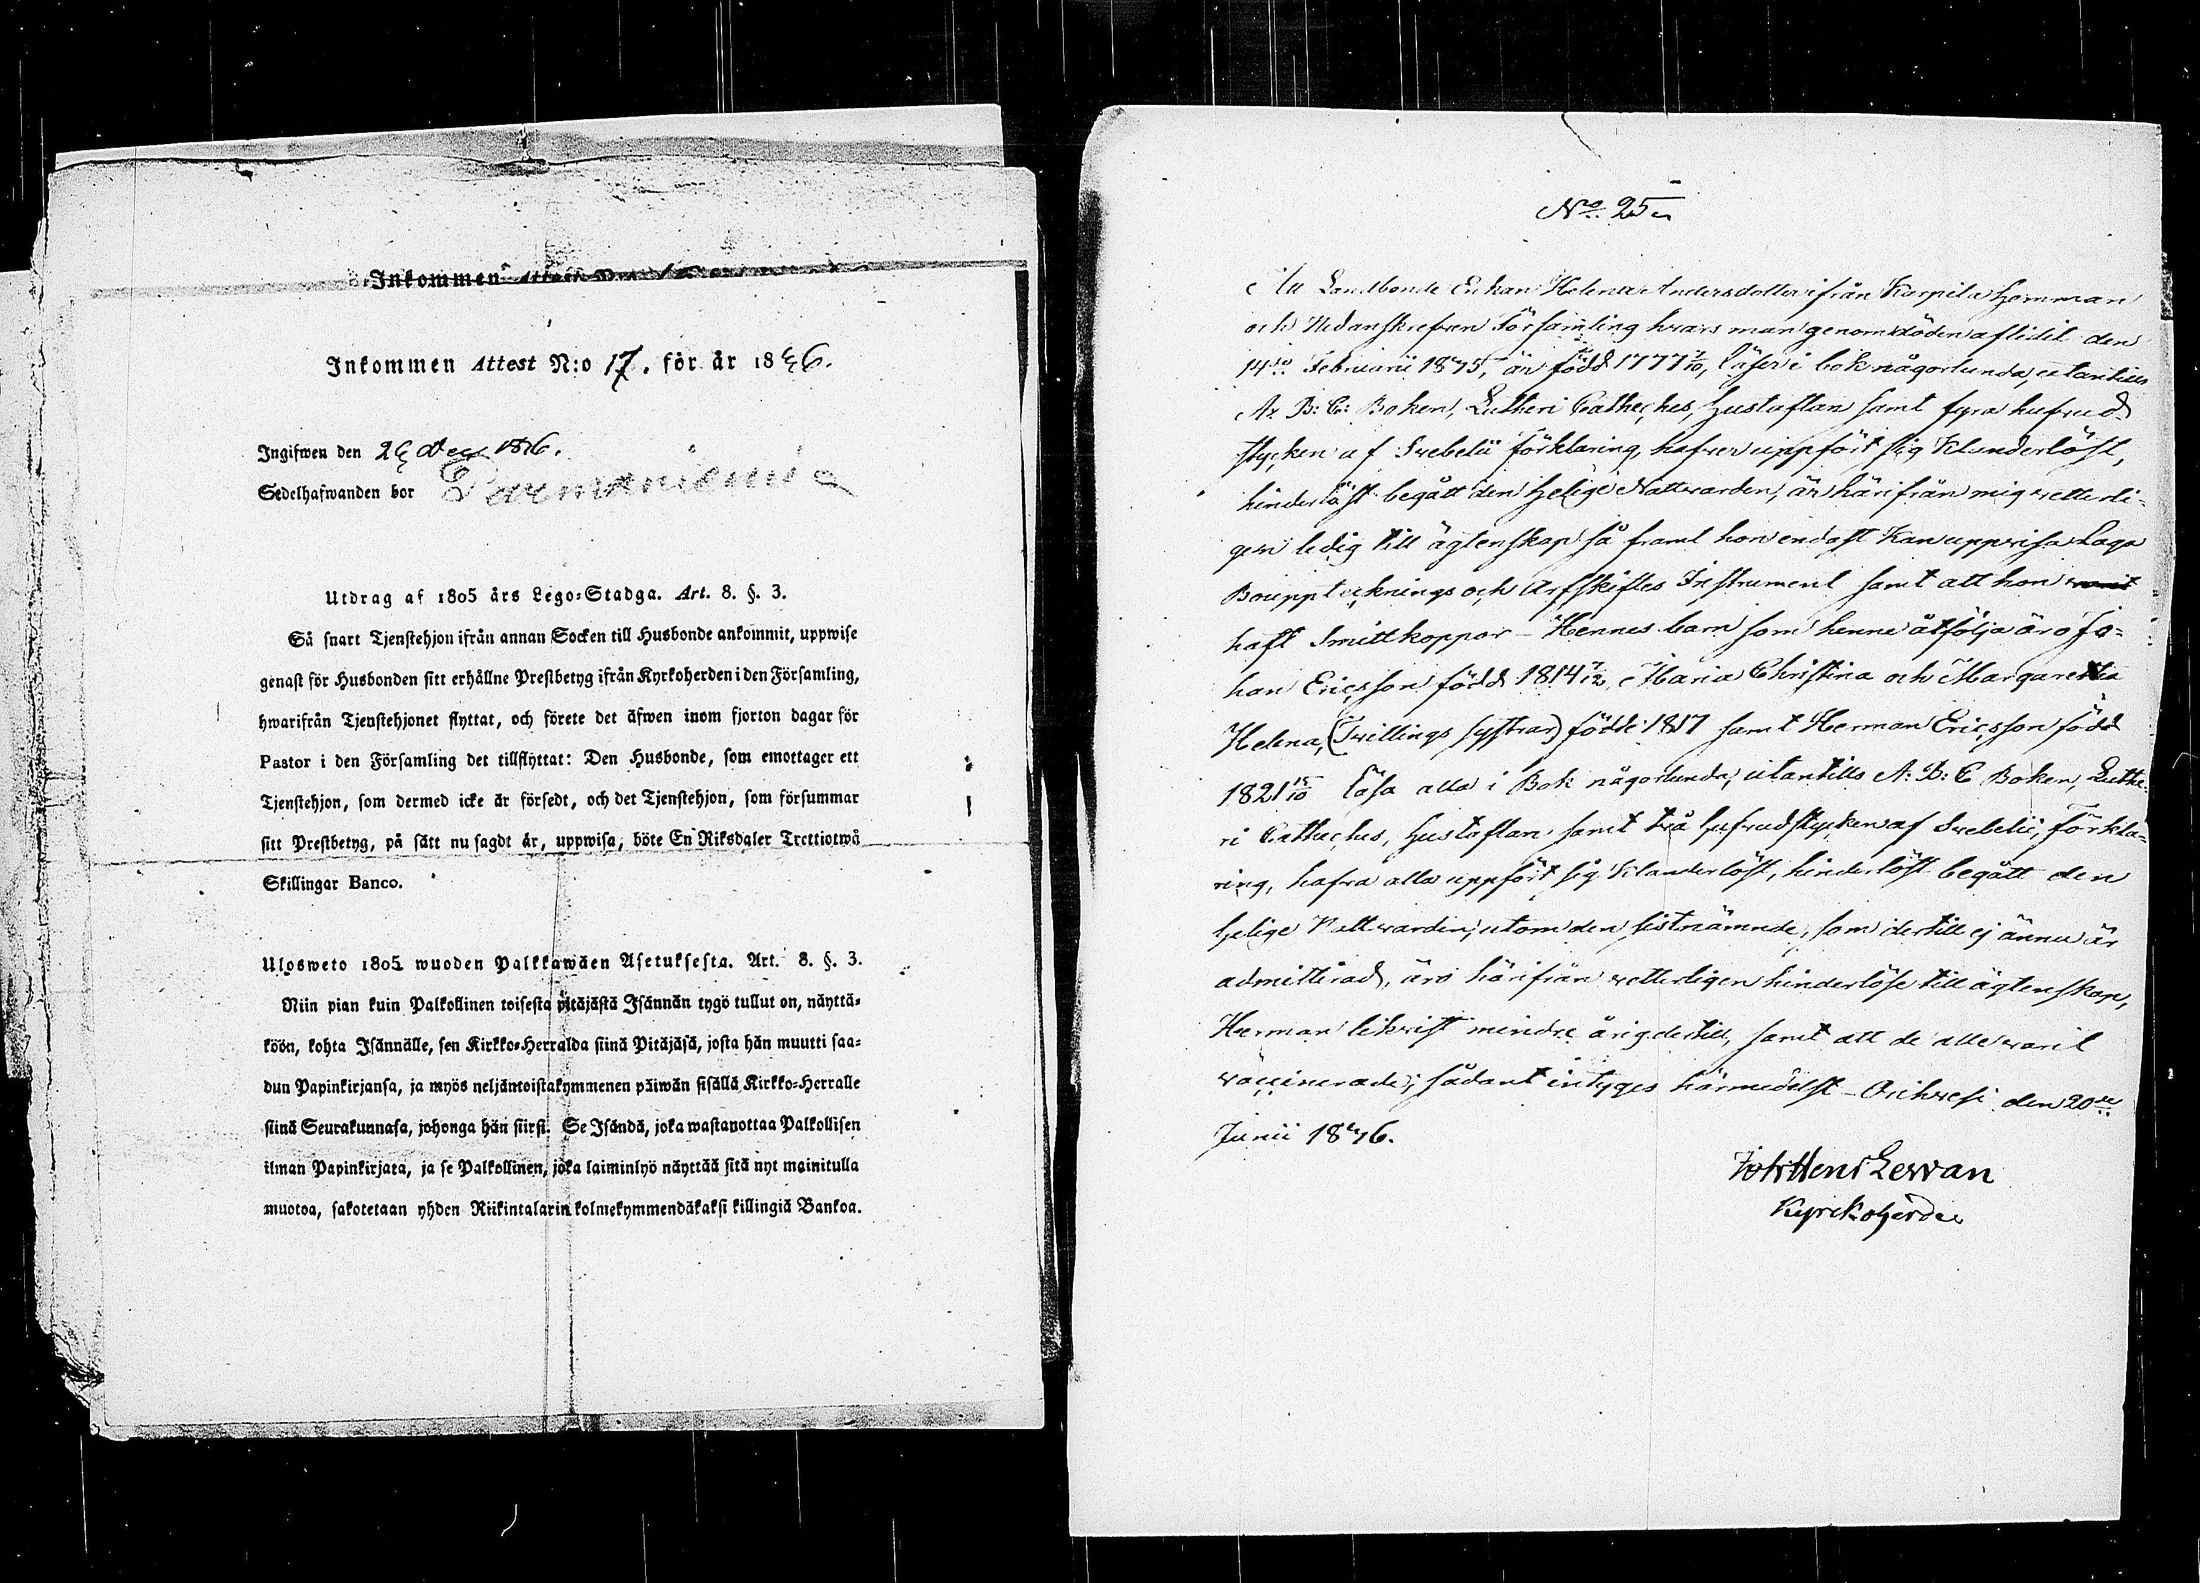 Inkommen Attest N:o
Inkommen Attest N:o 17. för år 1846.
Ingifwen den 26 Dec 1846.
Sedelhafwanden bor
Utdrag af 1805 års Lego-Stadga. Art. 8. §. 3.
Så snart Tjenstehjon ifrån annan Socken till Husbonde ankommit, uppwise
genast för Husbonden sitt erhållne Prestbetyg ifrån Kyrkoherden i den Församling,
hwarifrån Tjenstehjonet flyttat, och förete det äfwen inom fjorton dagar för
Pastor i den Församling det tillflyttat: Den Husbonde, som emottager ett
Tjenstehjon, som dermed icke är försedt, och det Tjenstehjon, som försummar
sitt Prestbetyg, på sätt nu sagdt är, uppwisa, böte En Riksdaler Trettiotwå
Skillingar Banco.
Ulosweto 1805 wuoden Palkkawäen Asetuksesta. Art. 8. §. 3.
Niin pian kuin Palkollinen toisesta pitäjästä Isännän tygö tullut on, näyttä-
köön, kohta Isännälle, sen Kirkko-Herralda siinä Pitäjäsä, josta hän muutti saa-
dun Papinkirjansa, ja myös neljäntoistakymmenen päiwän sisällä Kirkko-Herralle
siinä Seurakunnasa, johonga hän siirsi. Se Isändä, joka wastanottaa Palkollisen
ilman Papinkirjata, ja se Palkollinen, joka laiminlyö näyttää sitä nyt mainitulla
muotoa, sakotetaan yhden Riikintalarin kolmekymmendäkaksi killingiä Bankoa.
No. 25
Att Landbonde Enkan Helena Andersdotter ifrån Karpila Hemman
och Nedanskrefven Församling hvars man genom döden aflidit den
14de Februarii 1845, är född 1777 7/10, läser i bok någorlunda, utantills
A. B: C: Boken, Lutheri Cateches, Hustaflan samt fyra hufvud
stycken af Svebelii förklaring, hafver uppfört sig klanderlöst,
hinderlöst begått den Helige Nattvarden, är härifrån mig vetterli-
gen ledig till ägtenskap så framt hon endast kan uppvisa Laga
Bouppteknings och Arfskiftes Instrument samt att hon varit
haft Smittkoppor – Hennes barn som henne åtfölja äro Jo-
han Ericsson född 1814 7/12, Maria Christina och Margaretha
Helena, (Tvillings systrar) födde 1817 samt Herman Ericsson född
1821 15/10 Läsa alla i Bok någorlunda, utantills A: B: C Boken, Luthe-
ri Cateches, Hustaflan samt två hufvudstycken af Svebelii, förkla-
ring, hafva alla uppfört sig klanderlöst, hinderlöst begått den
helige Nattvarden, utom den sistnämnde, som dertill ej ännu är
admitterad, äro härifrån vetterligen hinderlöse till ägtenskap,
Herman likvist minderårig dertill, samt att de alle varit
vaccinerade; sådant intyges härmedelst – Orihvesi den 20de
Junii 1846.
Joh Henr Levvan
Kyrckoherde